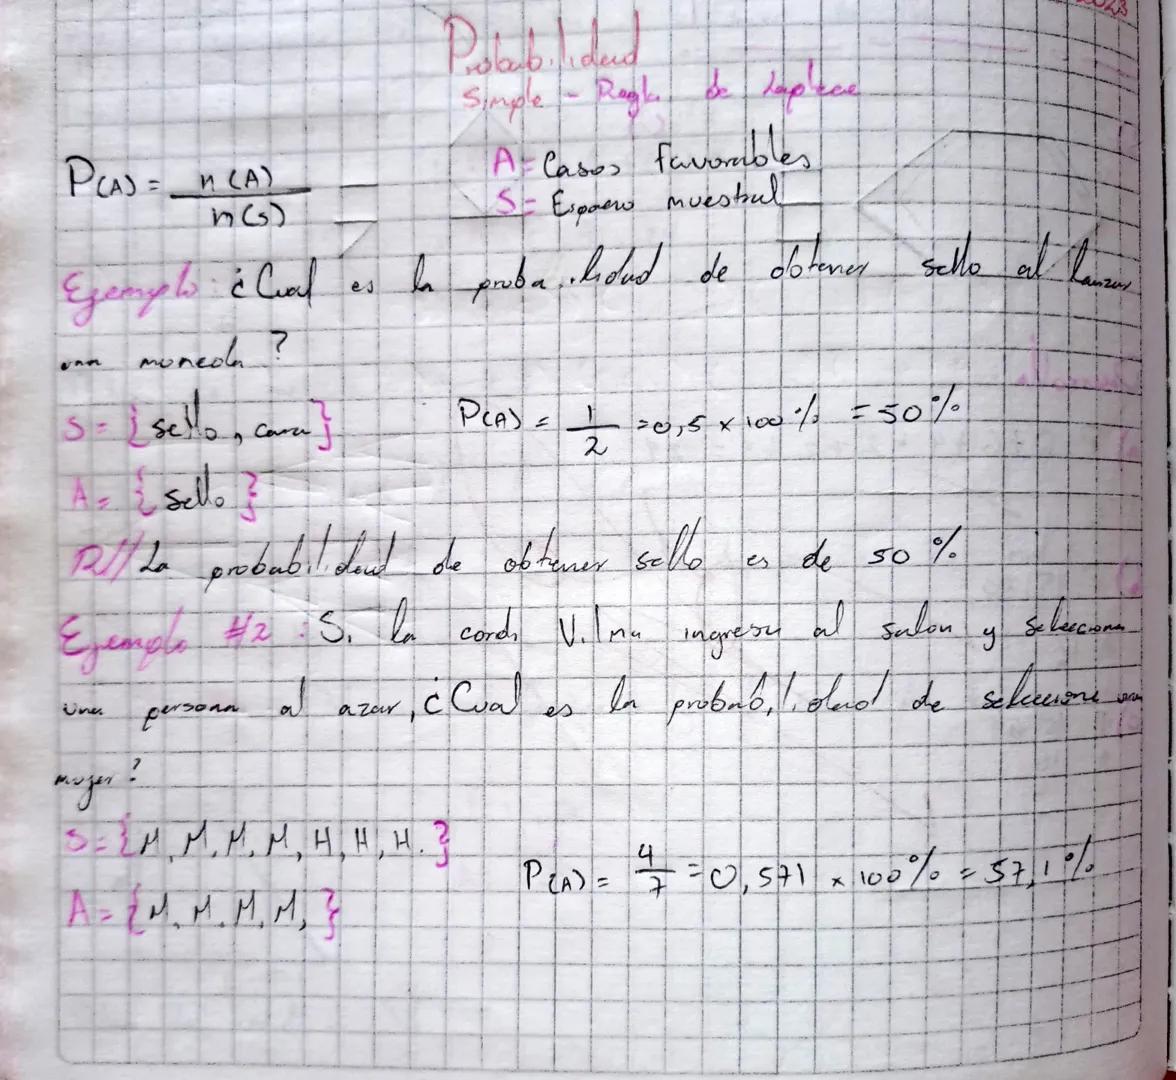 2023
Probabilidad
Simple - Regla de Laplace
P(A) = n(A) / n(s)
A = Casos favorables
S = Espacio muestral
Ejemplo: ¿Cual es la probabilidad de obtener sello al lanzar
una moneda?
S = {sello, cara}
P(A) = 1/2 = 0,5 x 100% = 50%
A = {sello}
R// La probabilidad de obtener sello es de 50%
Ejemplo #2: Si la cordi Vilma ingresa al salon y selecciona
una persona al azar, ¿Cual es la probabilidad de seleccione una
mujer?
S = {M, M, M, M, H, H, H.}
P(A) = 4/7 = 0,571 x 100% = 57,1%
A = {M, M, M, M,}